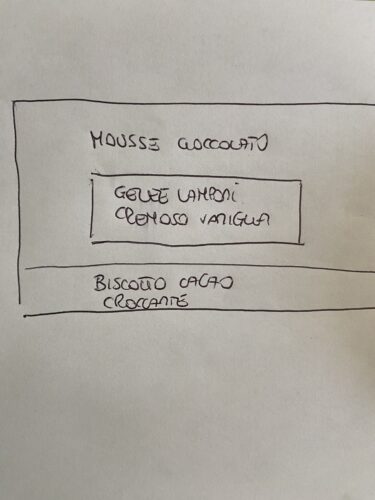 MOUSSE CIOCCOLATO
GELEE LAMPONI
CREMOSO VANIGLIA
BISCOTTO CACAO
CROCCANTE